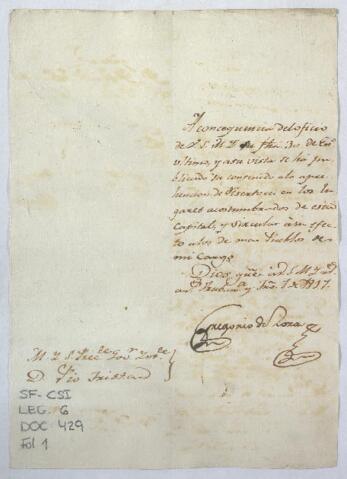 A consequencia del oficio
de V. S. M. Y. su fha. 30 de
ultimo, y a su vista se ha pu
blicado su contenido a la apre
hension de Desertores en los lu
gares acostumbrados de esta
Capital, y circular a su efec
to a los de mas Pueblos de
mi cargo
Dios gue. a V. S. M. Y. ms.
as. 1817.
Gregorio de
M. Y. S.
D. Pio Tristan
SF-CSI
LEG. 6
DOC 429
Fol 1